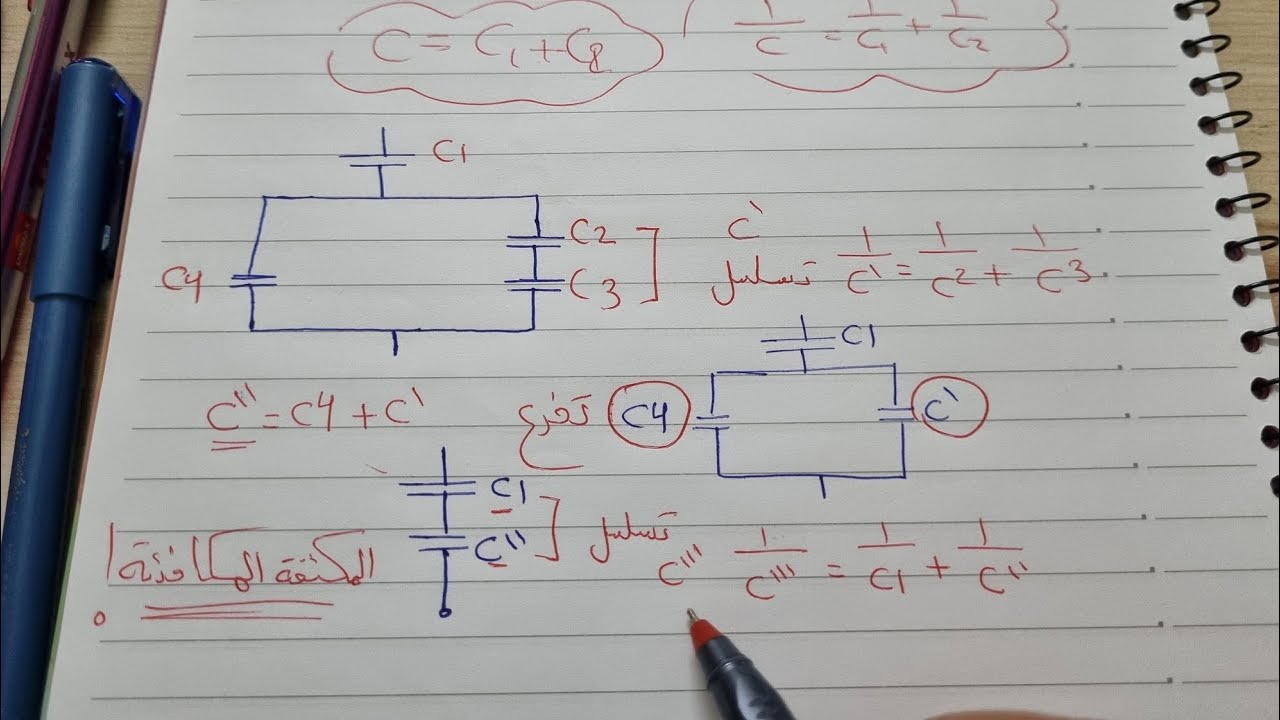 C = C₁ + C₂
1/C = 1/C₁ + 1/C₂
C1
C2
C4
C3
C'
تسلسل 1/C' = 1/C2 + 1/C3
C1
C4
C'
C'' = C4 + C' تفرع
C1
C''
تسلسل
C''' 1/C''' = 1/C1 + 1/C''
المكثفة المكافئة